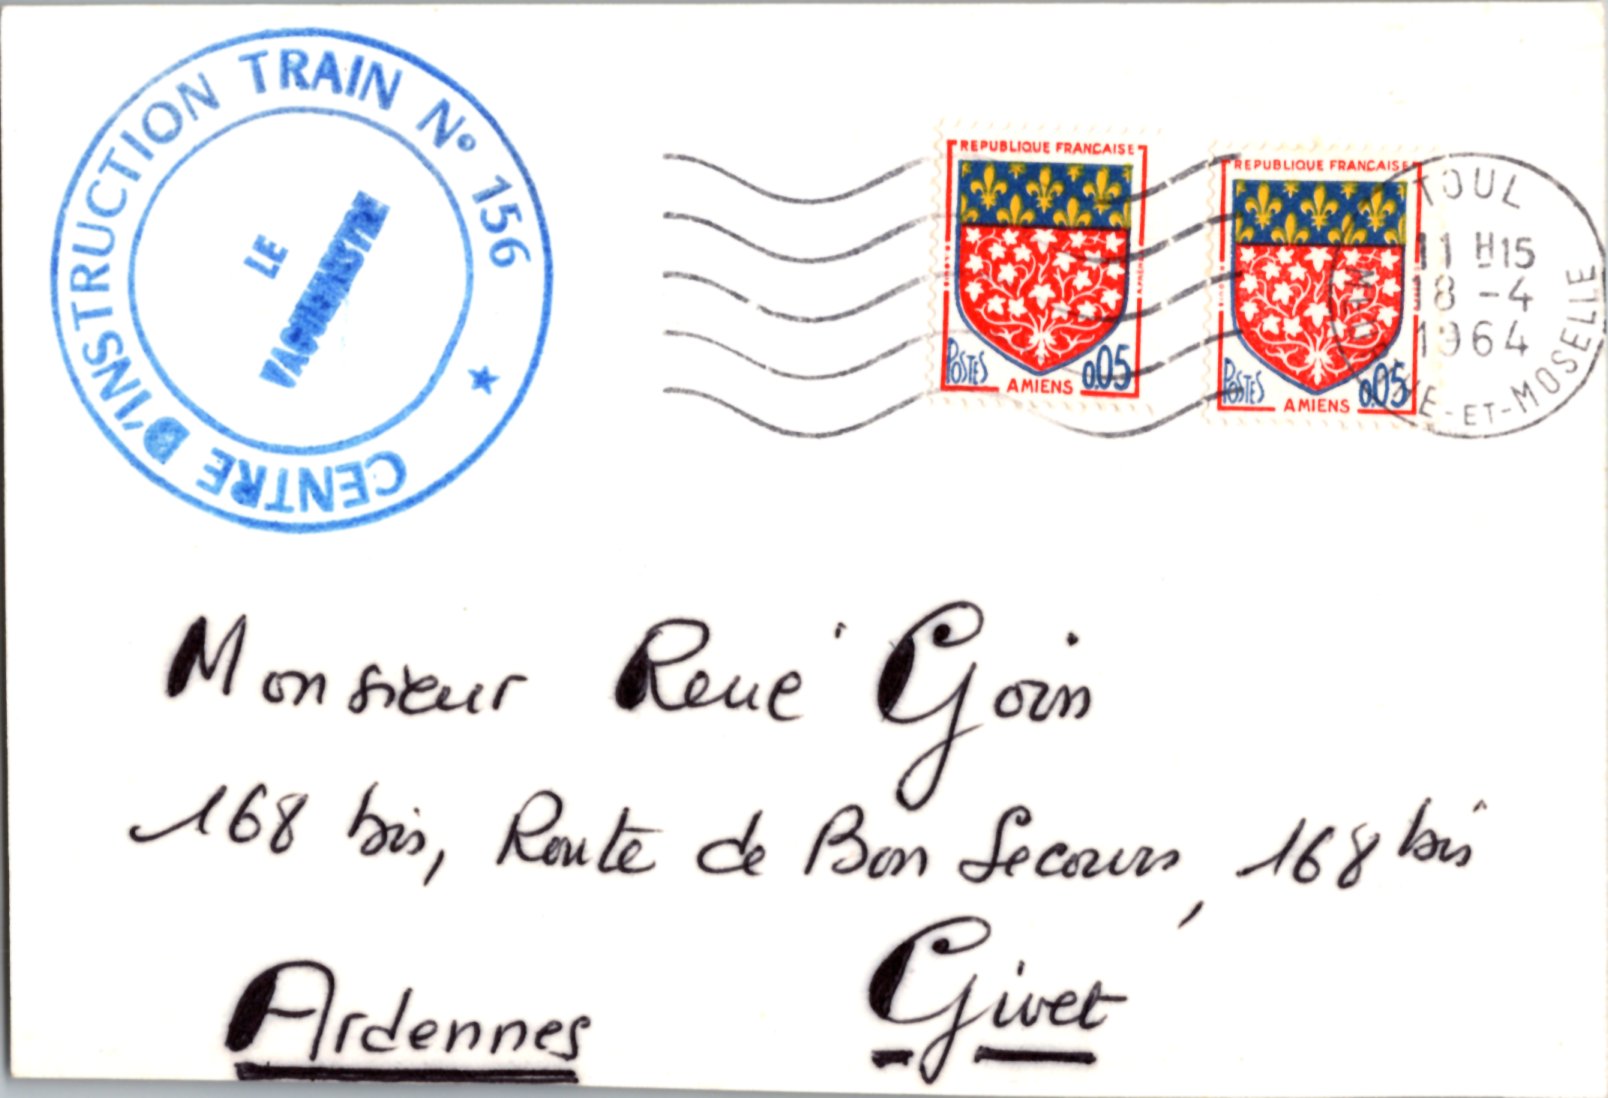 CENTRE D'INSTRUCTION TRAIN N° 156
LE
VAGUEMESTRE
REPUBLIQUE FRANCAISE
POSTES
0.05
AMIENS
REPUBLIQUE FRANCAISE
POSTES
0.05
AMIENS
TOUL
11 H15
18 -4
1964
E-ET-MOSELLE
Monsieur René Goin
168 bis, Route de Bon Secours, 168 bis
Givet
Ardennes